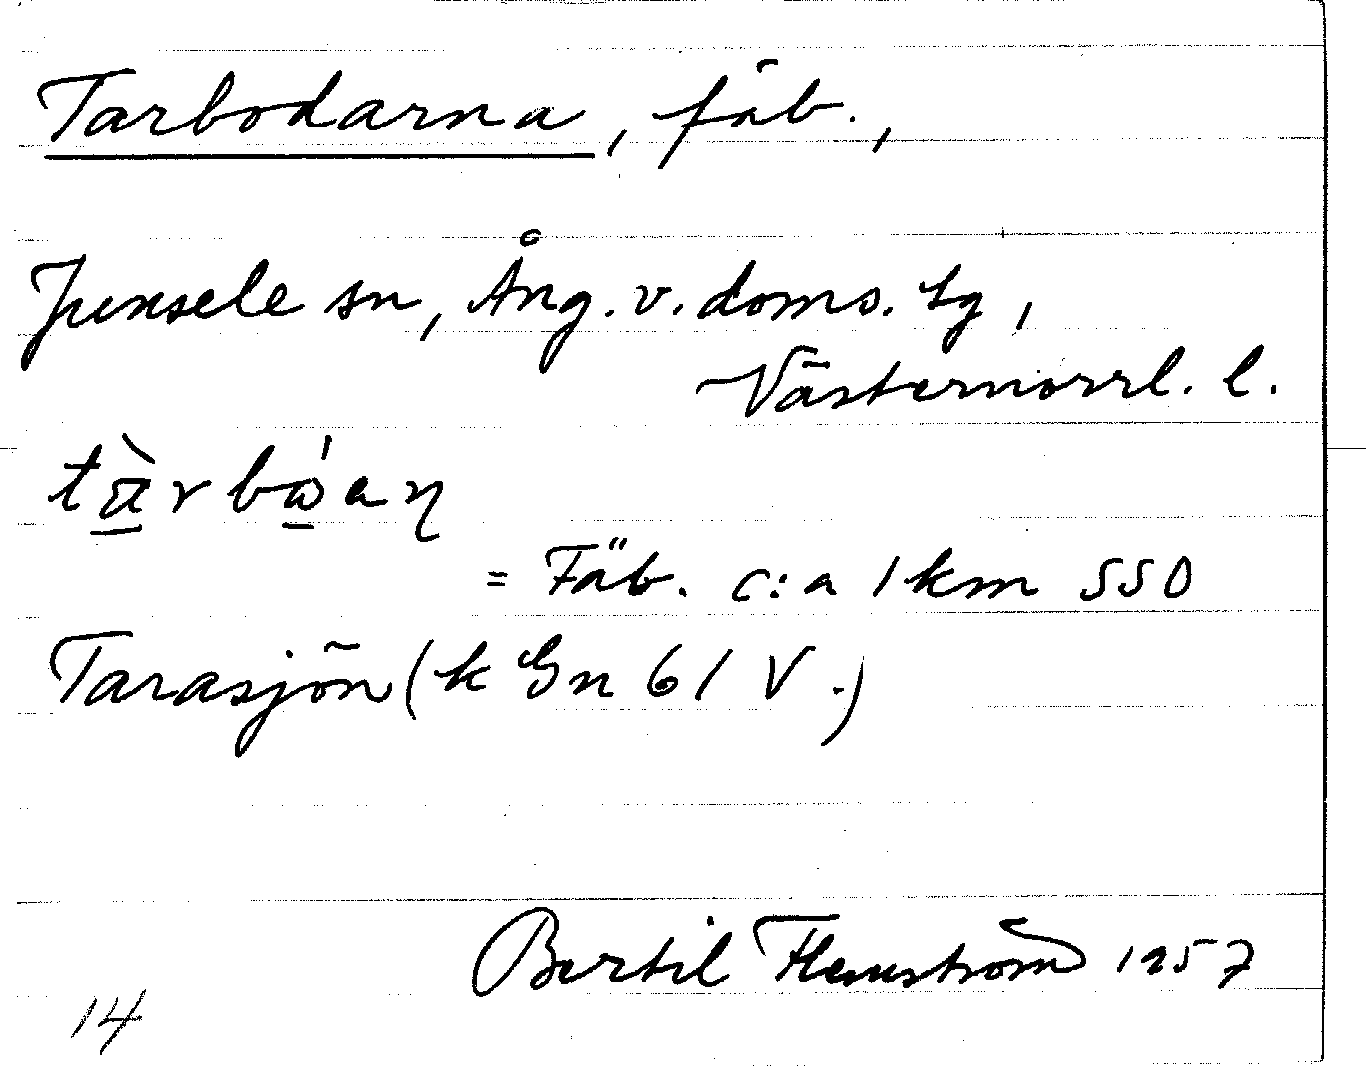 Tarbodarna, fäb.,
Junsele sn, Ång. v. doms. tg,
Västernorrl. l.
tàrbò'aŋ
= Fäb. c:a 1 km SSO
Tarasjön (k Gn 61 V.)
Bertil Flemström 1957
14